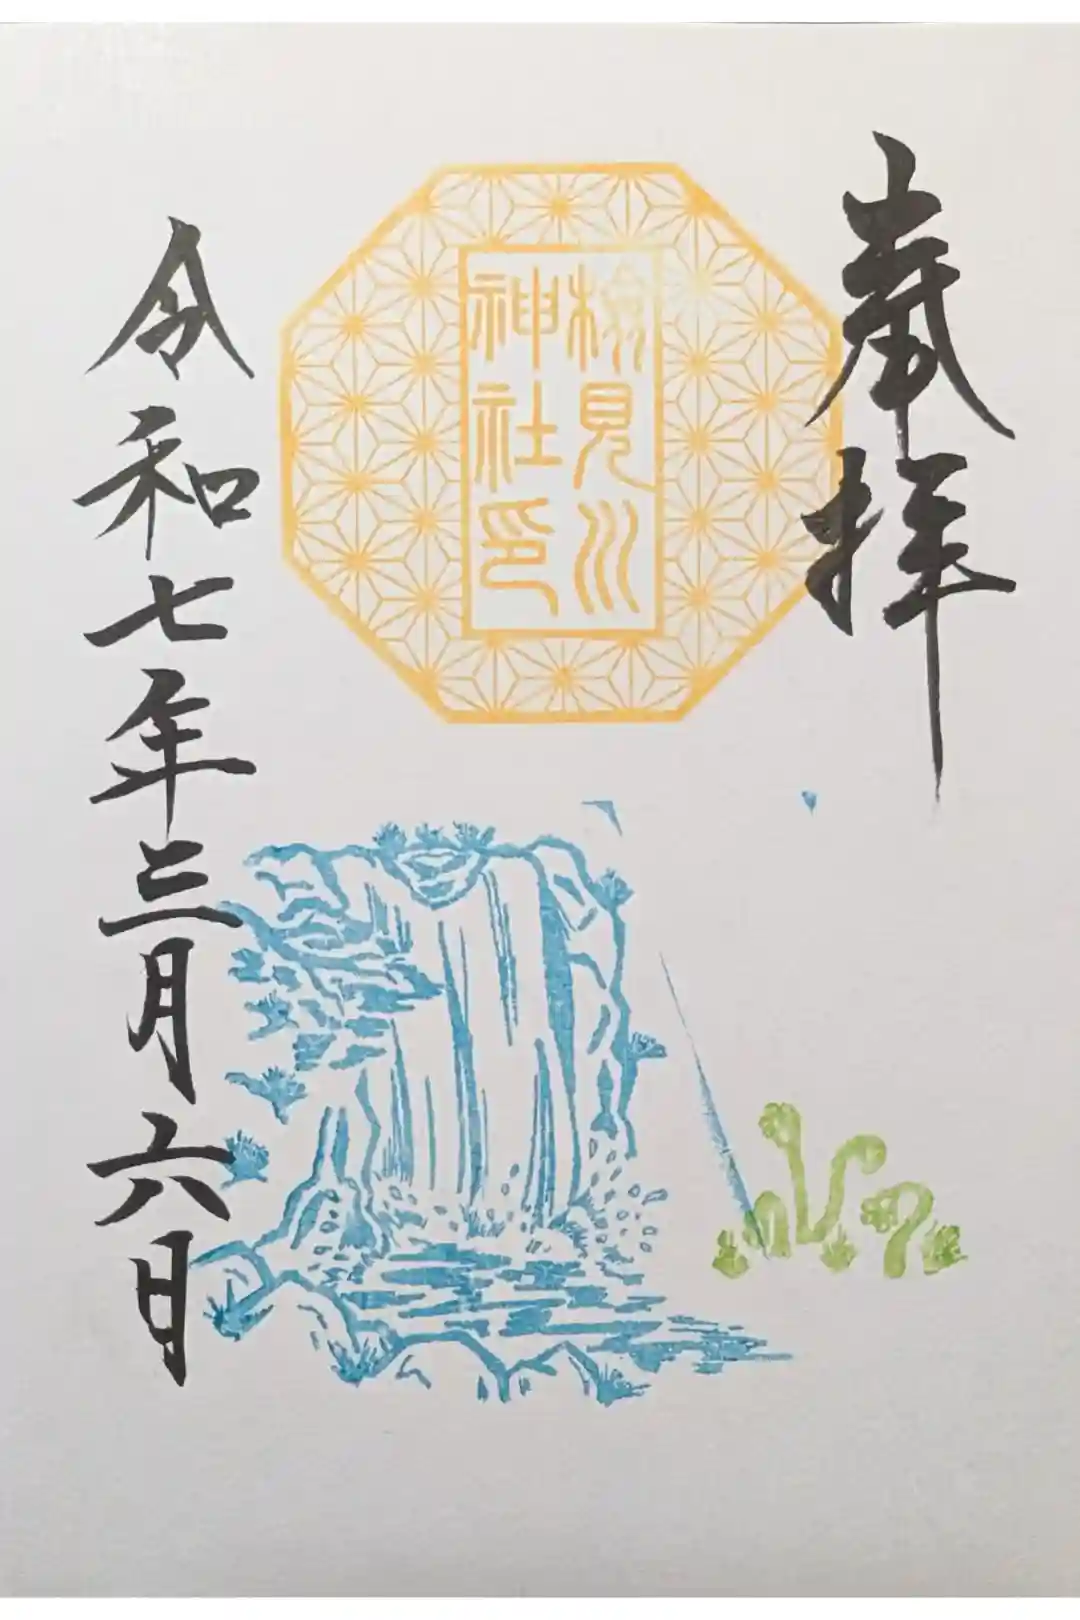 奉拝
検見川
神社印
令和七年三月六日